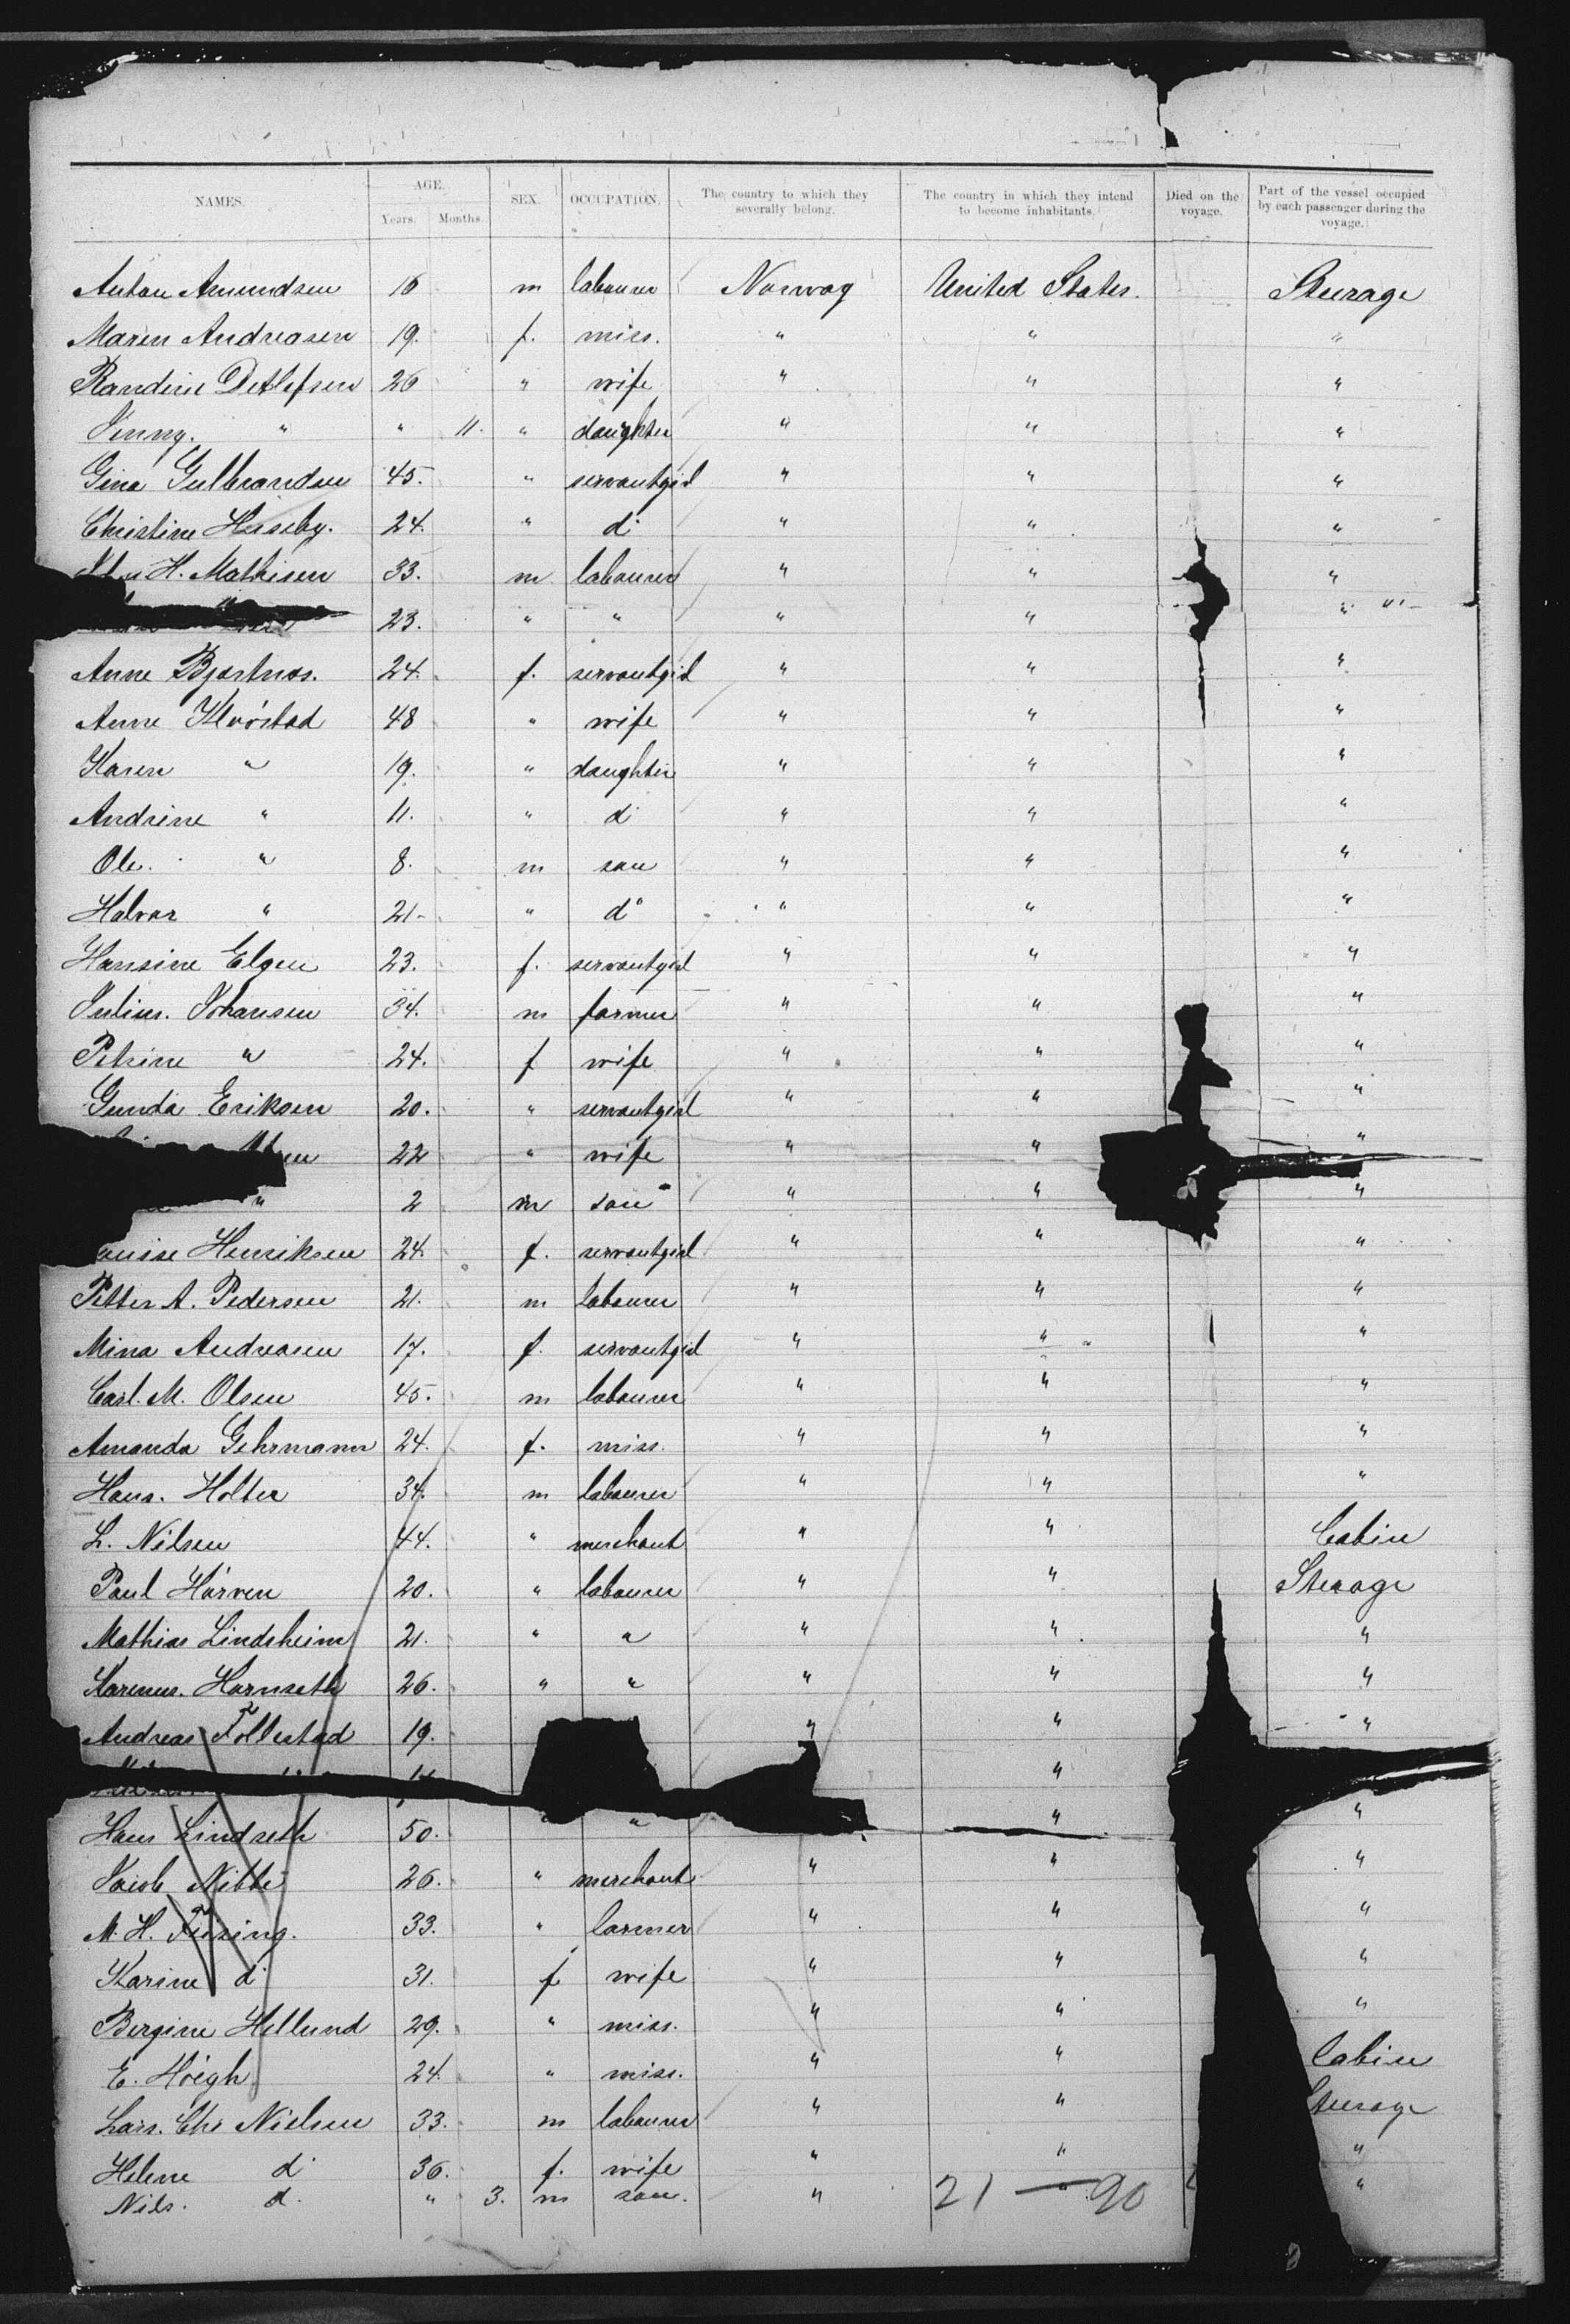 NAMES. AGE. SEX. OCCUPATION. The country to which they severally belong. The country in which they intend to become inhabitants. Died on the voyage. Part of the vessel occupied by each passenger during the voyage.
Years. Months.
Anton Amundsen 16 m labourer Norway United States. Steerage
Maren Andreasen 19. f. miss. " " "
Randine Detlefsen 26 " wife " " "
Jenny. " " 11. " daughter " " "
Gina Gulbrandsen 45. " servantgirl " " "
Christine Haseby. 24. " do " " "
H. Mathisen 33. m labourer " " "
23. " " " " "
Anne Bjørtnos. 24. f. servantgirl " " "
Anne Kløvstad 48 " wife " " "
Karen " 19. " daughter " " "
Andrine " 11. " do " " "
Ole. " 8. m son " " "
Halvor " 21 " do " " "
Hansine Elgen 23. f. servantgirl " " "
Julius. Johansen 34. m farmer " " "
Petrine " 24. f wife " " "
Gunda Eriksen 20. " servantgirl " " "
22 " wife " " "
" 2 m son " " "
Henriksen 24. f. servantgirl " " "
Petter A. Pedersen 21. m labourer " " "
Mina Andreasen 17. f. servantgirl " " "
Carl. M. Olsen 45. m labourer " " "
Amanda Gehrmann 24. f. miss. " " "
Hans. Holter 34. m labourer " " "
L. Nilsen 44. " merchant " " Cabin
Paul Hørven 20. " labourer " " Steerage
Mathias Lindsheim 21. " " " " "
Karenus. Harnseth 26. " " " " "
Andreas Follestad 19. " " "
"
Hans Lindseth 50. " " " "
Jacob Nibbe 26. " merchant " " "
M. H. Fusing. 33. " farmer " " "
Karine do 31. f wife " " "
Bergine Hellund 29. " miss. " " "
E. Höegh 24. " miss. " " Cabin
Lars. Chr Nielsen 33. m labourer " " Steerage
Helene do 36. f. wife " " "
Nils. do. " 3. m son. " " "
21 — 90